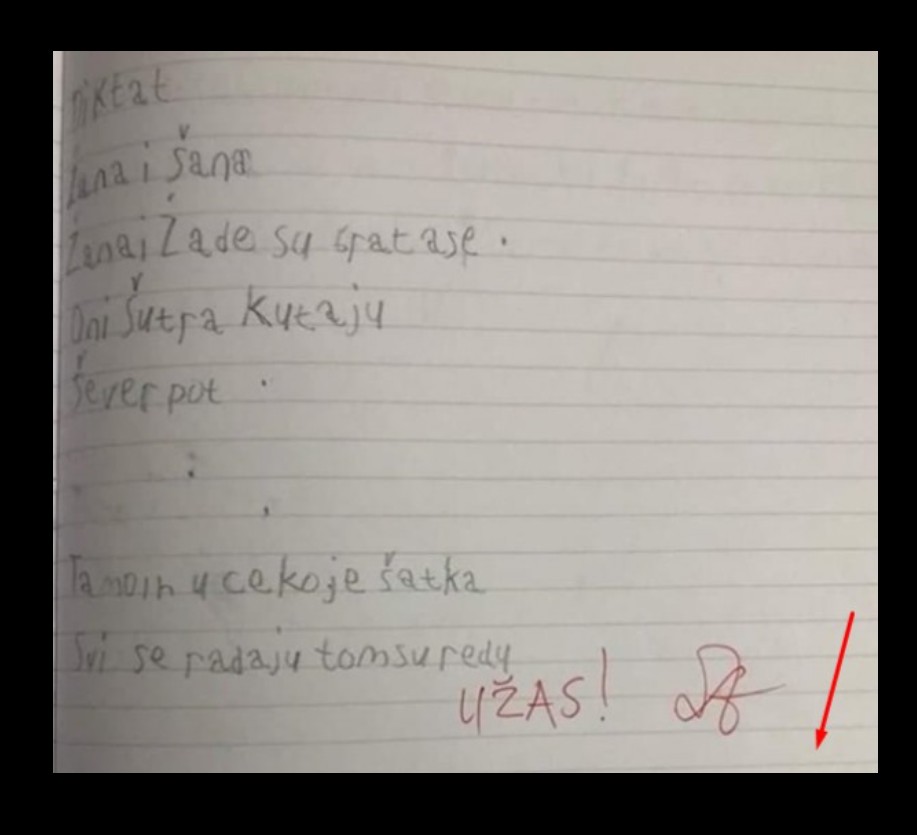 Diktat
Žana i Šana
Žana i Žade su sratase.
Oni Šutra Kutaju
Šever pot.
Tamoin u cekoje šatka
Svi se radaju tomsuredu
UŽAS!